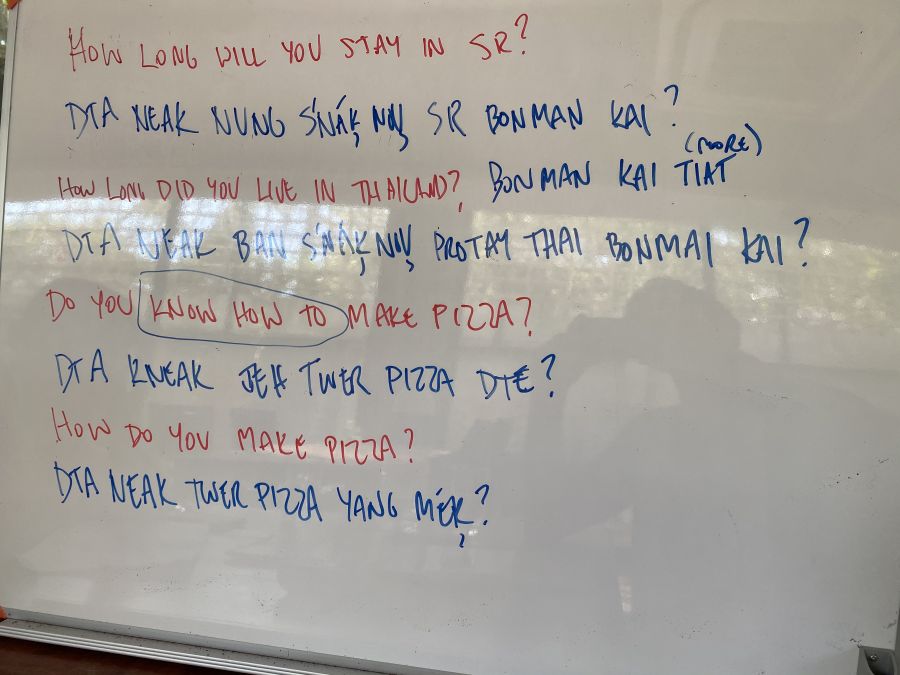 HOW LONG WILL YOU STAY IN SR?
DTA NEAK NUNG S'NÁK NOV SR BONMAN KAI?
(MORE)
BONMAN KAI TIAT
HOW LONG DID YOU LIVE IN THAILAND?
DTA NEAK BAN S'NÁK NOV PROTAY THAI BONMAI KAI?
DO YOU KNOW HOW TO MAKE PIZZA?
DTA KNEAK JEH TWER PIZZA DTE?
HOW DO YOU MAKE PIZZA?
DTA NEAK TWER PIZZA YANG MÉK?